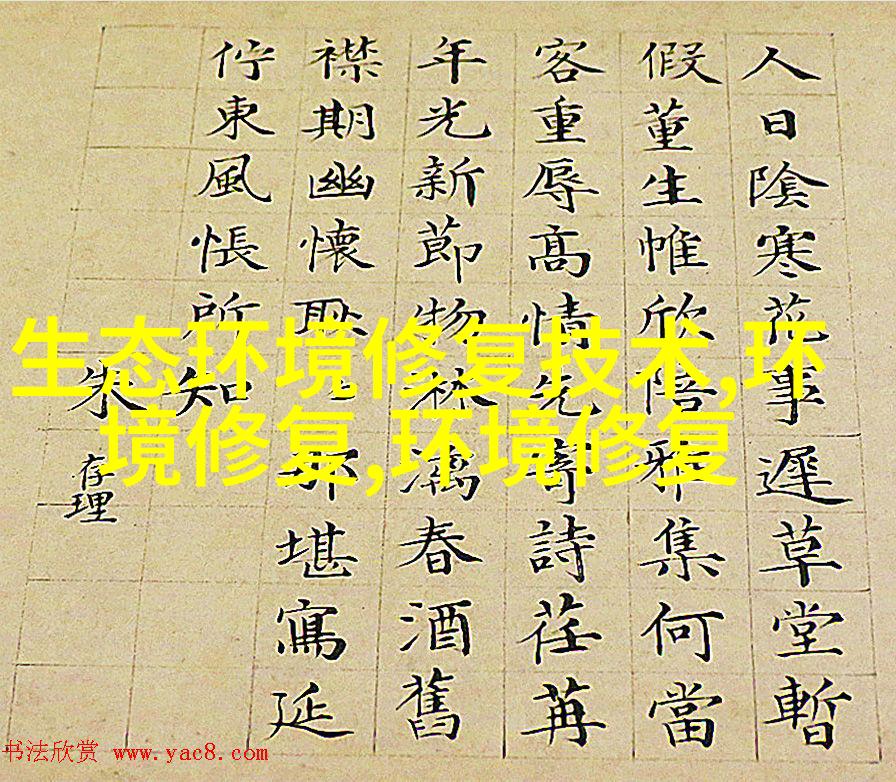 人日陰寒花事遲草堂暫
假董生帷欣陪雅集何當
客重辱高情先寄詩荏苒
年光新節物淋漓春酒舊
襟期幽懷耿〻那堪寫延
佇東風悵所知
朱存理
生态环境修复技术,环
境修复,环境修复
书法欣赏 www.yac8.com